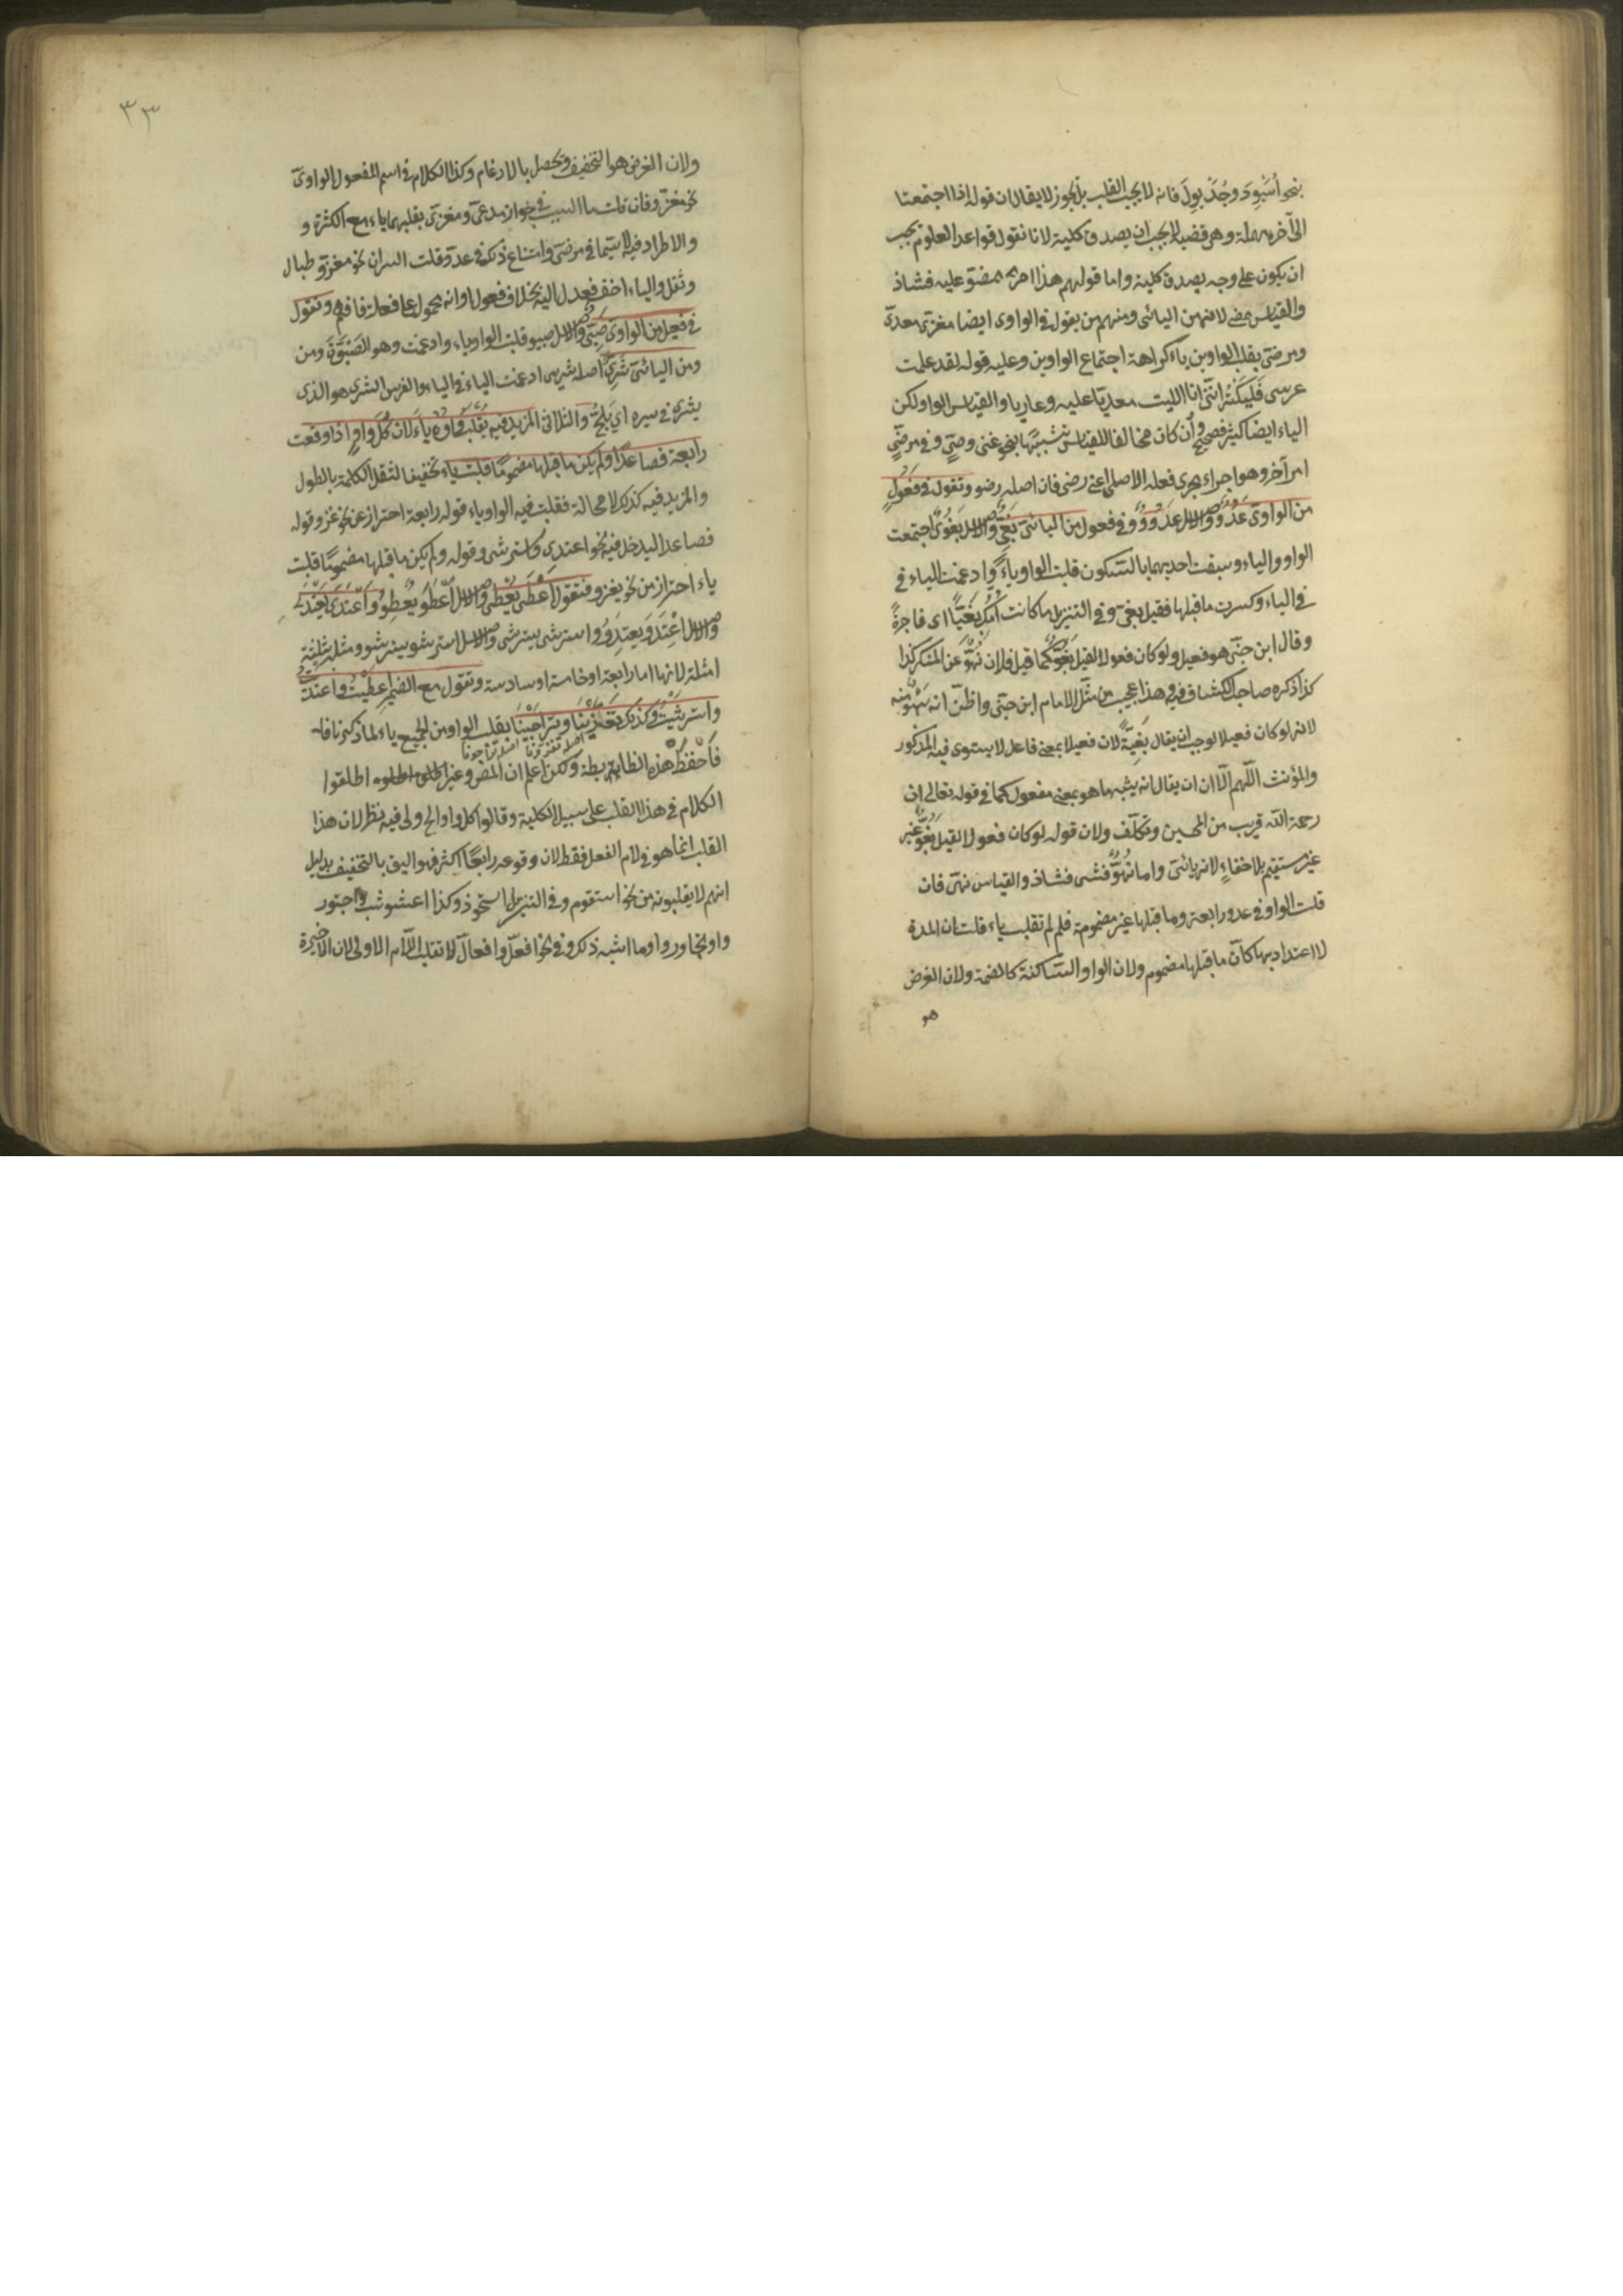 نحو أسيود وجديول فانه لا يجب القلب بل يجوز لا يقال ان قوله اذا اجتمعتا
الى آخره مهملة وهى قضية لا يجب ان يصدق كلية لانا نقول قواعد العلوم يجب
ان يكون على وجه يصدق كلية واما قولهم هذا امر ممضو عليه فشاذ
والقياس ممضى لانه من اليائى ومنهم من يقول فى الواوى ايضا مغزى معدى
ومرضى بقلب الواوين ياء كراهة اجتماع الواوين وعليه قوله لقد علمت
عرسى مليكة اننى انا الليث معديا عليه وعاديا والقياس الواو لكن
الياء ايضا كثير فصيح وان كان مخالفا للقياس تشبيها بنحو عتى وجثى وفى مرضى
امر آخر وهو اجراءه مجرى فعله الاصلى اعنى رضى فان اصله رضو وتقول فى فعول
من الواوى عَدُوٌّ والاصل عدووٌ وفى فعول من اليائى بغى والاصل بغوى اجتمعت
الواو والياء وسبقت احديهما بالسكون قلبت الواو ياءً وادغمت الياء فى
فى الياء وكسرت ما قبلها فقيل بغى وفى التنزيل ما كانت امك بغيًّا اى فاجرة
وقال ابن جنى هو فعيل ولو كان فعولا لقيل بغوٌّ كما قيل فلان نهوٌّ عن المنكر كذا
كذا ذكره صاحب الكشاف فيه وهذا عجيب من مثل الامام ابن جنى واظن انه سهو منه
لانه لو كان فعيلا لوجب ان يقال بغية لان فعيلا بمعنى فاعل لا يستوى فيه المذكور
والمؤنث اللهم الا ان ان يقال انه يشبه ما هو بمعنى مفعول كما فى قوله تعالى ان
رحمة الله قريب من المحسنين وتكلف ولان قوله لو كان فعولا لقيل بغوٌّ غير
غير مستقيم بلا خفاء لانه يائى واما نهوٌّ فشاذ والقياس نهى فان
قلت الواو فى عدو رابعة وما قبلها غير مضمومة فلم لم تقلب ياء قلت ان المدة
لا اعتداد بها كأن ما قبلها مضموم ولان الواو الساكنة كالضمة ولان الغرض
هو
٣٣
ولان الغرض هو التخفيف ويحصل بالادغام وكذا الكلام فى اسم المفعول الواوى
نحو مغزو فان قلت ما السبب فى جواز مدعى ومغزى بقلبهما ياء مع الكثرة و
والاطراد فيه لا سيما فى مرضى وامتناع ذلك فى عدو قلت السر ان نحو مغزو طال
وثقل والياء اخف فعدل اليه بخلاف فعول وانه محمول على فعله فافهم وتقول
فى فعيل من الواوى صبى والاصل صبيو قلبت الواو ياء وادغمت وهو الصبوة ومن
ومن اليائى شرى اصله شريى ادغمت الياء فى الياء والفرس الشرى هو الذى
يشرى فى سيره اى يلج والثلاثى المزيد فيه يقلب واوه ياء لان كل واو اذا وقعت
رابعة فصاعدا ولم يكن ما قبلها مضموما قلبت ياء تخفيفا لثقل الكلمة بالطول
والمزيد فيه كذلك لا محالة فقلبت فيه الواو ياء قوله رابعة احتراز عن نحو غزو قوله
فصاعدا ليدخل فيه نحو اعتدى واسترشى وقوله ولم يكن ما قبلها مضموما قلبت
ياء احتراز من نحو يغزو فتقول أعطى يعطى والاصل أعطو يعطو واعتدى يعتدى
والاصل اعتدو يعتدو واسترشى يسترشى والاصل استرشو يسترشو ومثل بثلثة
امثلة لانها اما رابعة او خامسة او سادسة وتقول مع الضمير اعطيت واعتديت
واسترشيت وكذلك تغازينا وتراجينا بقلب الواو من الجميع ياء لما ذكرنا
اصله تغازونا اصله تراجونا
فاحفظ هذه الضابطة ولكن اعلم ان المص وغيره اطلقوا
الكلام فى هذا القلب على سبيل الكلية وقالوا كل واو الخ ولى فيه نظر لان هذا
القلب انما هو فى لام الفعل فقط لان وقوعه رابعًا اكثر فهو اليق بالتخفيف بدليل
انهم لا يقلبونه من نحو استقوم وفى التنزيل استحوذ وكذا اعشوشب واجتور
واو تجاور وما اشبه ذلك وفى نحو افعلّ وافعالّ لا تقلب اللام الاولى لان الاخيرة